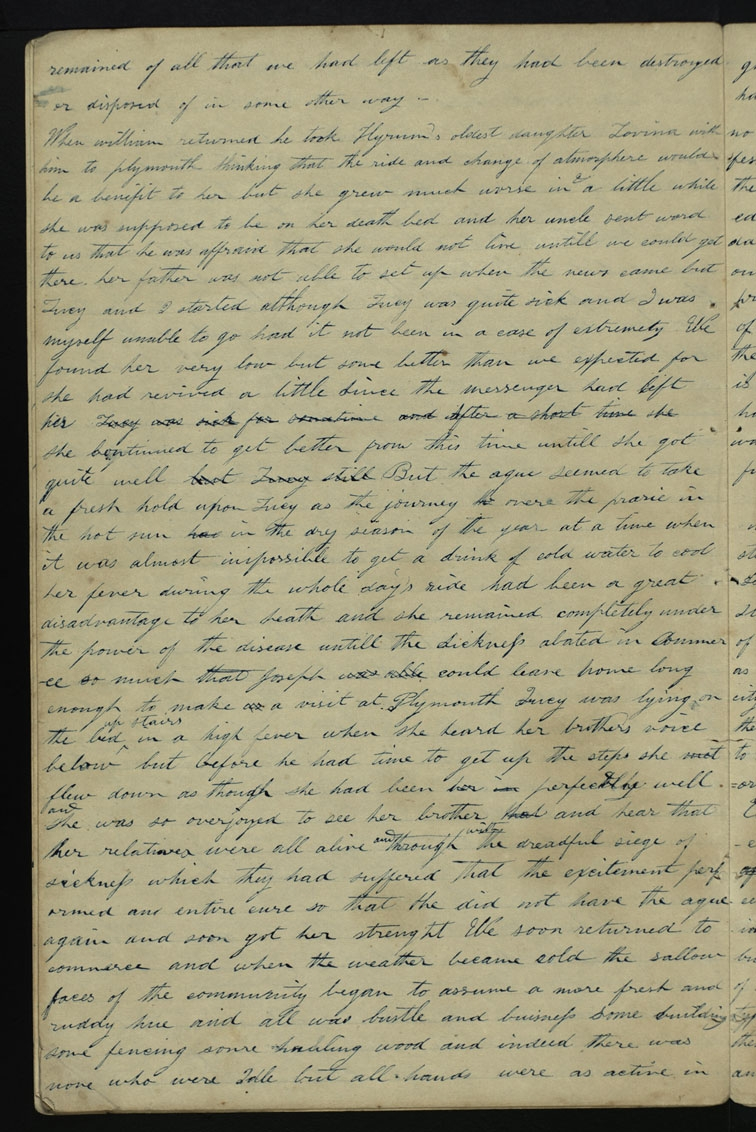 remained of all that we had left as they had been destroyed
or disposed of in some other way -
When william returned he took Hyrum's oldest daughter Lovina with
him to plymouth thinking that the ride and change of atmosphere would
be a benefit to her but she grew much worse in a little while
she was supposed to be on her death bed and her uncle sent word
to us that he was affraid that she would not live untill we could get
there. her father was not able to set up when the news came but
Lucy and I started although Lucy was quite sick and I was
myself unable to go had it not been in a case of extremety We
found her very low but some better than we expected for
she had revived a little since the messenger had left
her Lucy was sick for sometime and after a short time she
she continued to get better from this time untill she got
quite well but Lucy still But the ague seemed to take
a fresh hold upon Lucy as the journey to overe the prarie in
the hot sun had in the dry season of the year at a time when
it was almost impossible to get a drink of cold water to cool
her fever during the whole day's ride had been a great
disadvantage to her heath and she remained completely under
the power of the disease untill the sickness abated in Commer
-ce so much that Joseph was able could leave home long
enough to make a visit at Plymouth Lucy was lying on
the bed up stairs in a high fever when she heard her brothers voice
below but before he had time to get up the steps she
flew down as though she had been her in perfectly well
and she was so overjoyed to see her brother and hear that
her relatives were all alive and through with the dreadful siege of
sickness which they had suffered that the excitement perf
ormed and entire cure so that she did not have the ague
again and soon got her strenght We soon returned to
commerce and when the weather became cold the sallow
faces of the community began to assume a more fresh and
ruddy hue and all was bustle and buisness some building
some fencing some hauling wood and indeed there was
none who were Idle but all hands were as active in